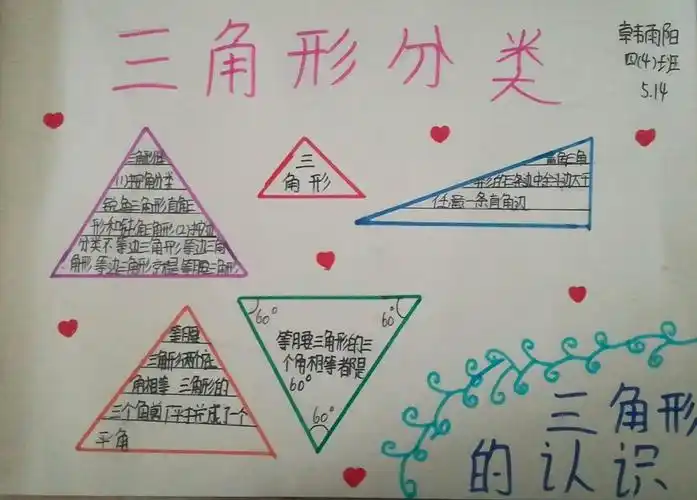 三角形分类
韩雨阳
四(4)班
5.14
(1)按角分类
锐角三角形直角三
形和钝角三角形(2)按边
分类不等边三角形 等边三角
角形 等边三角形
三
角形
直角三角
形的三条边中
任意一条直角边
等腰
三角形两个底
角相等 三角形的
三个角
平角
60° 60°
等腰三角形的三
个角相等都是
60°
60°
三角形
的认识